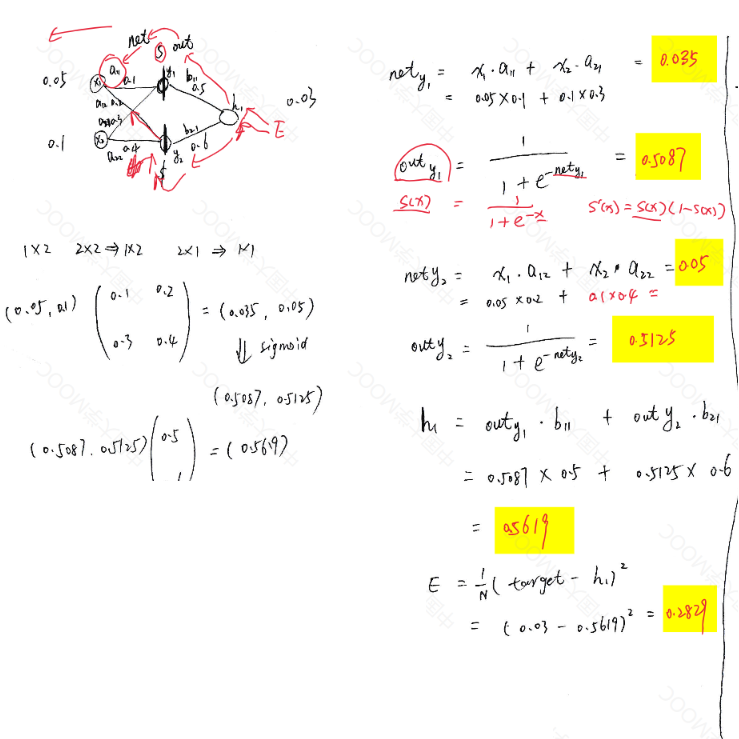 net
S
out
0.05
x₁
a₁₁
0.1
y₁
b₁₁
0.5
h₁
0.03
a₁₂ 0.2
a₂₁ 0.3
E
0.1
x₂
0.4
a₂₂
y₂
b₂₁
0.6
S
1×2 2×2 ⇒ 1×2 2×1 ⇒ 1×1
(0.05, 0.1) ( 0.1 0.2
0.3 0.4 ) = (0.035, 0.05)
⇓ sigmoid
(0.5087, 0.5125)
(0.5087, 0.5125) ( 0.5 ) = ( 0.5619)
net y₁ = x₁ · a₁₁ + x₂ · a₂₁ = 0.035
= 0.05 × 0.1 + 0.1 × 0.3
out y₁ = 1 / (1 + e^(-net y₁)) = 0.5087
S(x) = 1 / (1 + e^(-x)) S'(x) = S(x)(1-S(x))
net y₂ = x₁ · a₁₂ + x₂ · a₂₂ = 0.05
= 0.05 × 0.2 + 0.1 × 0.4 =
out y₂ = 1 / (1 + e^(-net y₂)) = 0.5125
h₁ = out y₁ · b₁₁ + out y₂ · b₂₁
= 0.5087 × 0.5 + 0.5125 × 0.6
= 0.5619
E = 1/N ( target - h₁)²
= (0.03 - 0.5619)² = 0.2829
中国大学MOOC